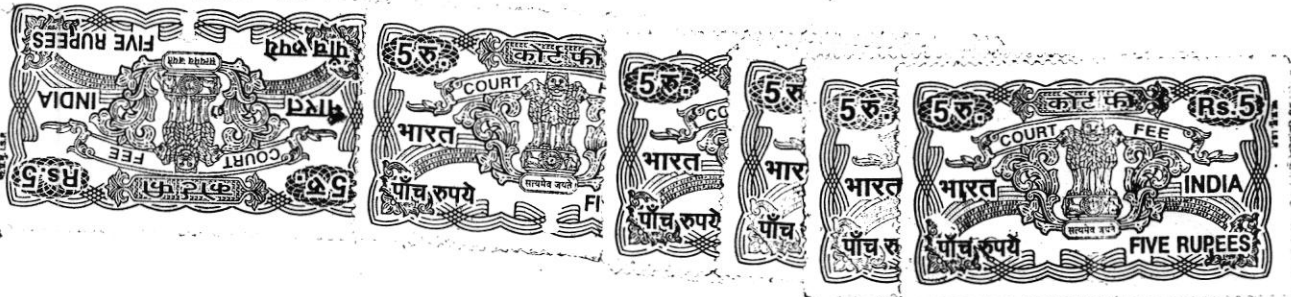 5 रु. कोर्ट फी Rs.5
COURT FEE
भारत INDIA
सत्यमेव जयते
पाँच रुपये FIVE RUPEES
5 रु. कोर्ट फी
COURT
भारत
सत्यमेव जयते
पाँच रुपये FI
5 रु.
CO
भारत
पाँच रुपये
5 रु
भार
पाँच
5 रु.
भारत
पाँच रु
5 रु. कोर्ट फी Rs.5
COURT FEE
भारत INDIA
सत्यमेव जयते
पाँच रुपये FIVE RUPEES